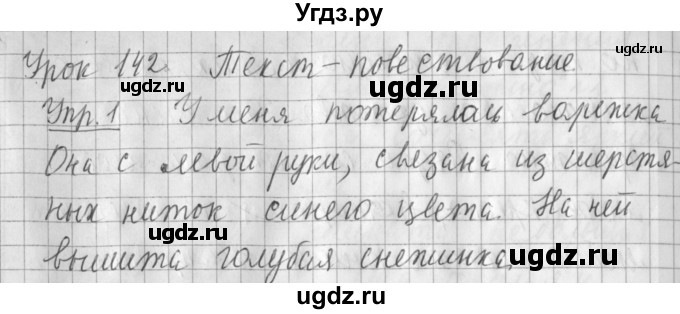 Угдз.ру
Урок 142. Текст-повествование
ugdz.ru
Упр.1 У меня потерялась варежка
ugdz.ru
Она с левой руки, связана из шерстя-
ugdz.ru
ных ниток синего цвета. На ней
ugdz.ru
вышита голубая снежинка.
ugdz.ru
ugdz.ru